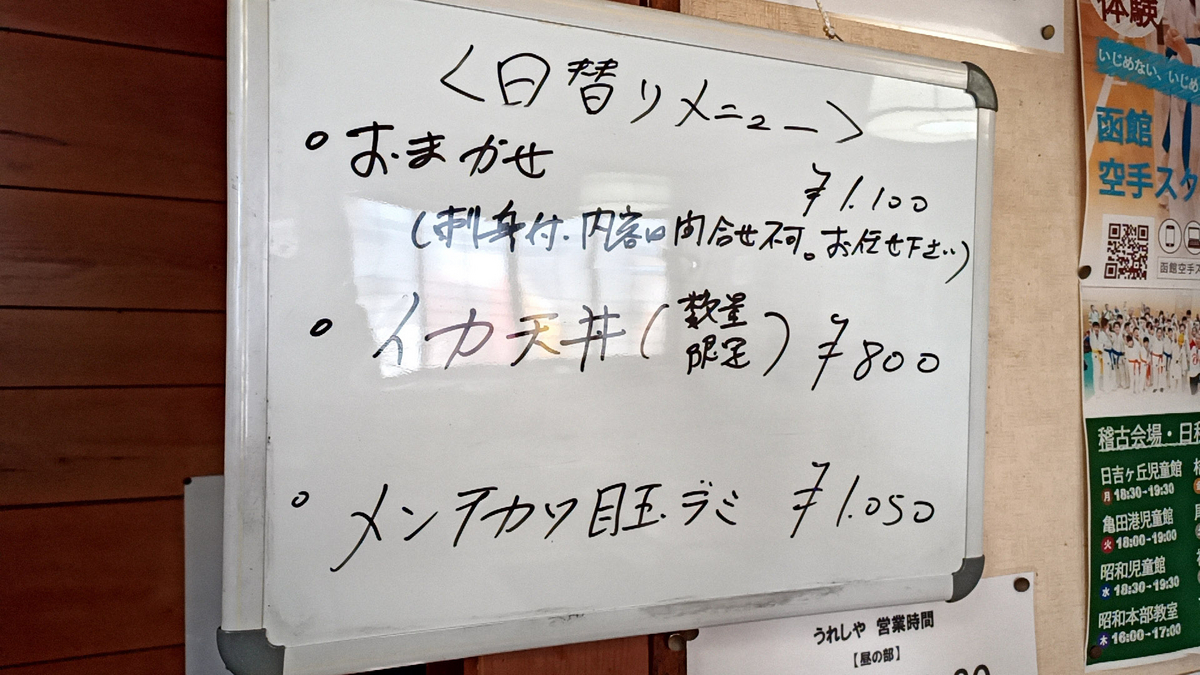 <日替りメニュー>
◦おまかせ ¥1.100
(刺身付.内容は問合せ不可。お任せ下さい)
◦イカ天丼(数量限定) ¥800
◦メンチカツ目玉.デミ ¥1.050
体験
いじめない、いじめ
函館
空手スタ
函館空手ス
稽古会場・日程
日吉ヶ丘児童館
月 18:30~19:30
亀田港児童館
火 18:00~19:00
昭和児童館
水 18:30~19:30
昭和本部教室
木 16:00~17:00
うれしや 営業時間
【昼の部】